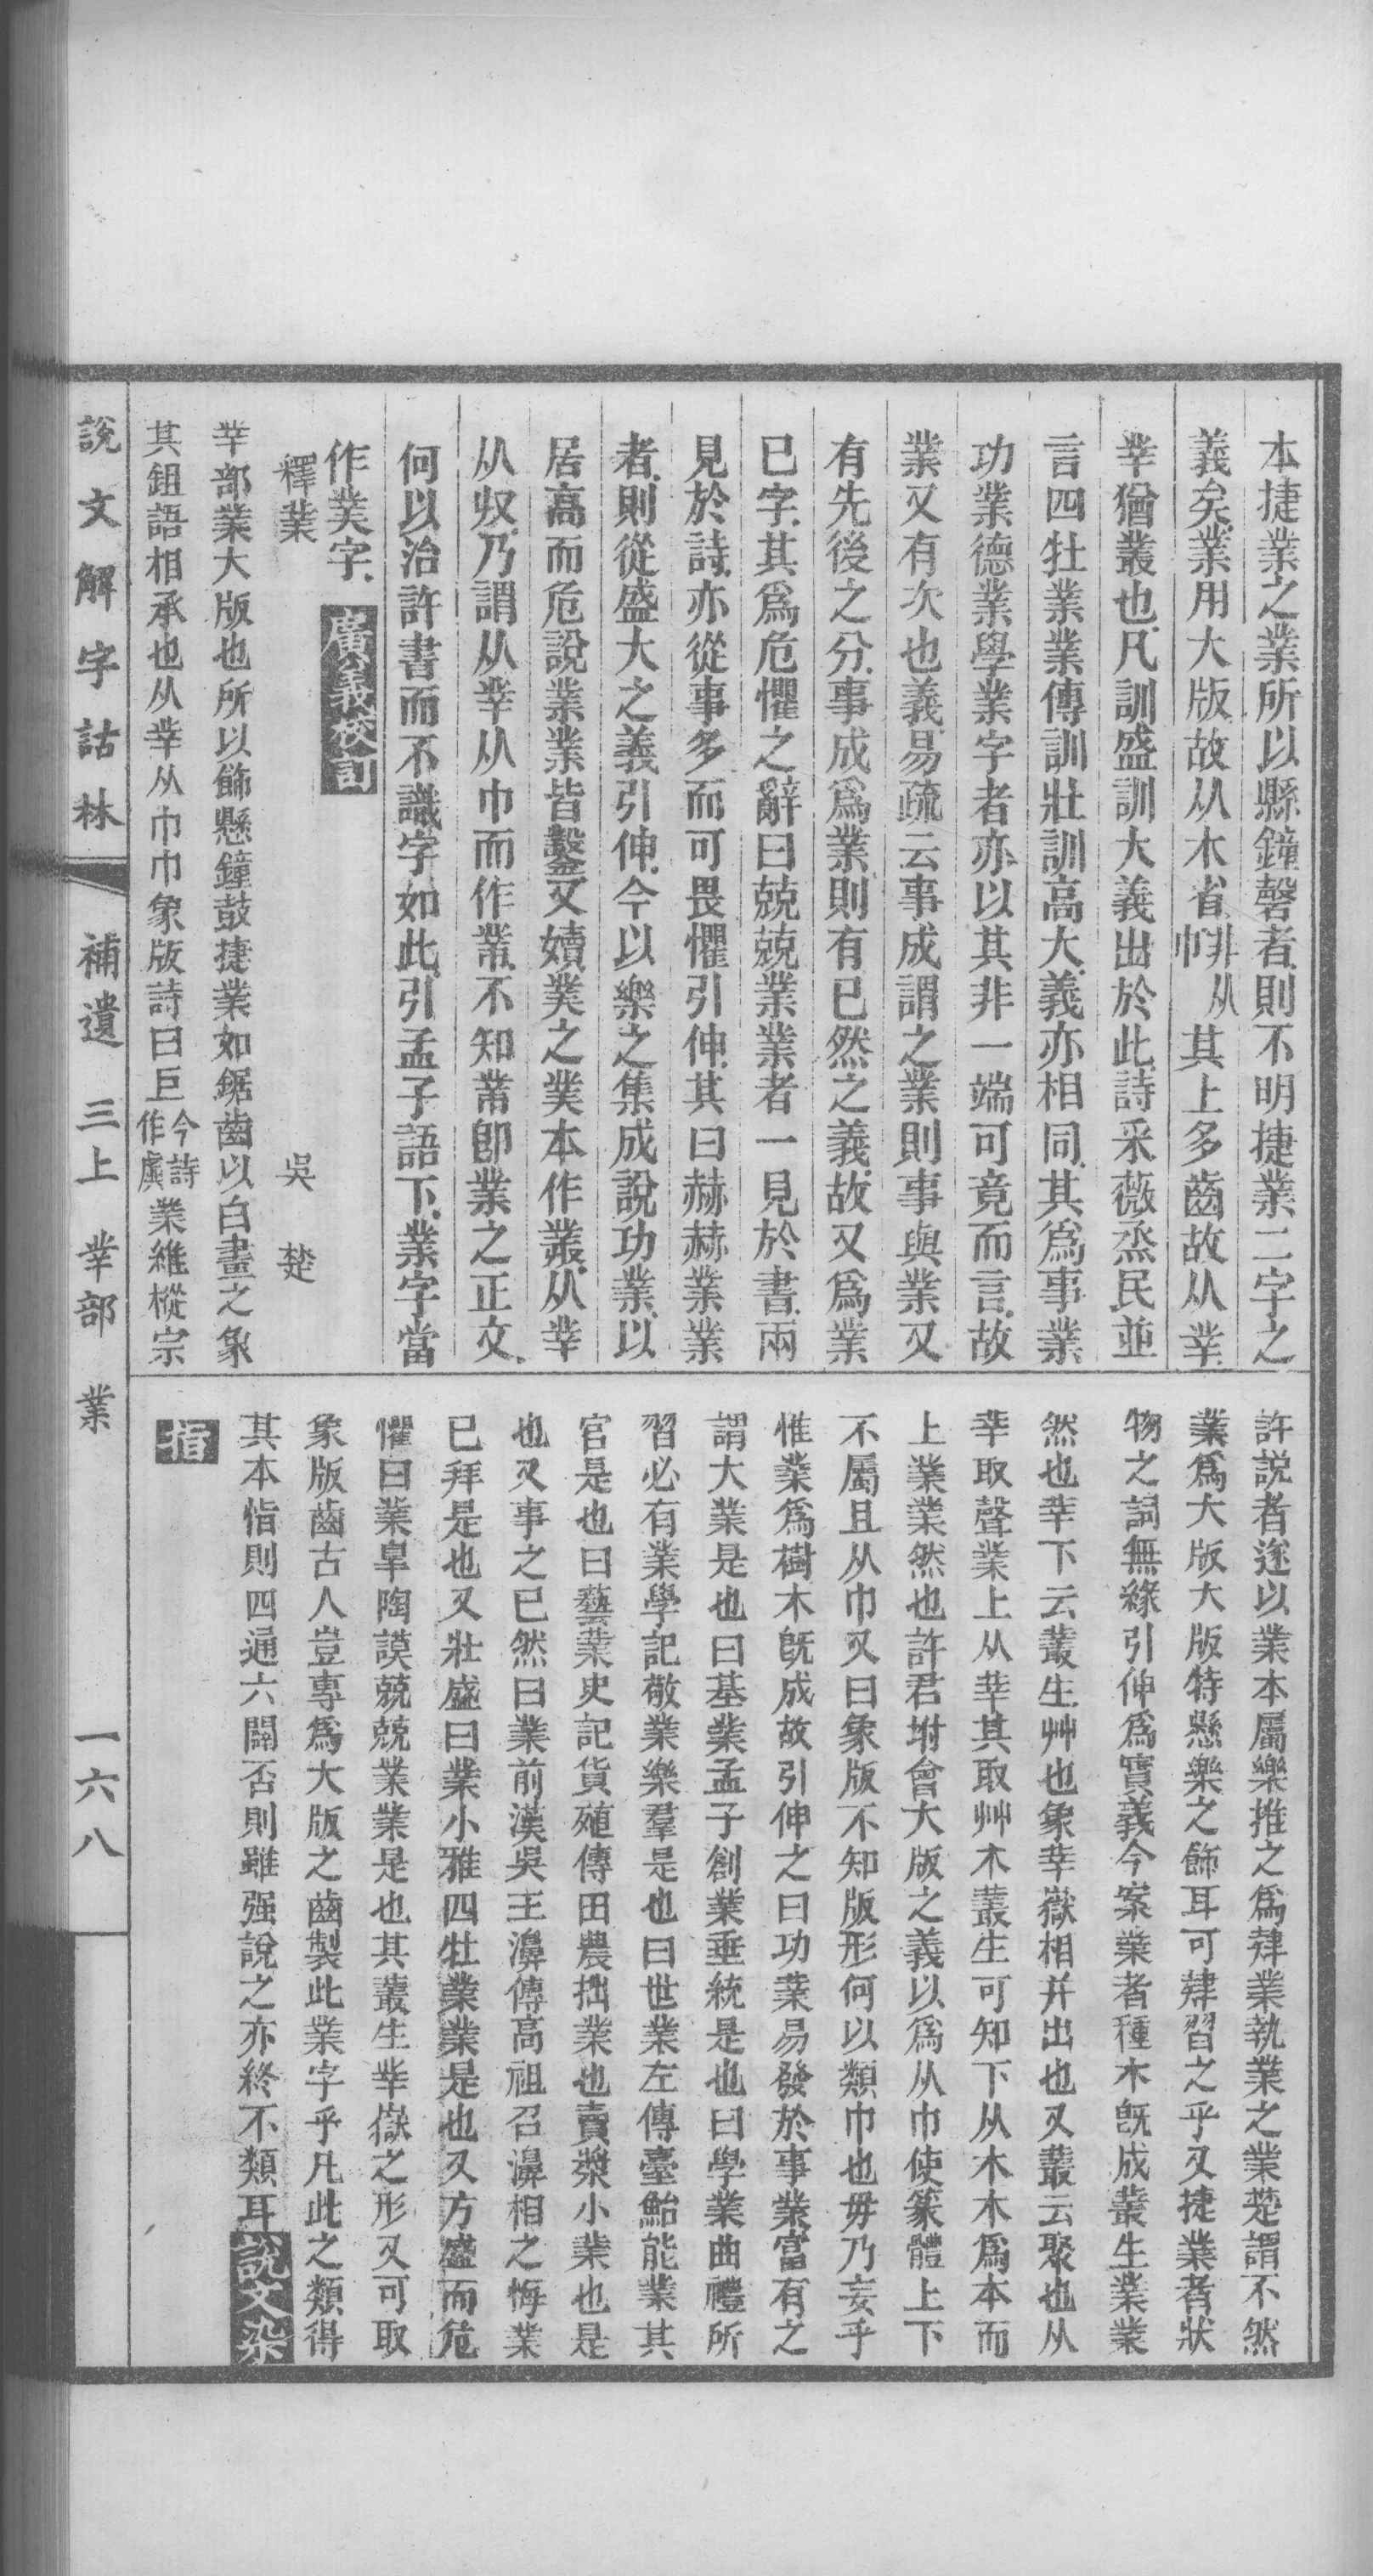 本捷業之業所以縣鐘磬者則不明捷業二字之
義矣業用大版故从木省非从巾其上多齒故从丵
丵猶叢也凡訓盛訓大義出於此詩采薇烝民並
言四牡業業傳訓壯訓高大義亦相同其爲事業
功業德業學業字者亦以其非一端可竟而言故
業又有次也義易疏云事成謂之業則事與業又
有先後之分事成爲業則有已然之義故又爲業
已字其爲危懼之辭曰兢兢業業者一見於書兩
見於詩亦從事多而可畏懼引伸其曰赫赫業業
者則從盛大之義引伸今以樂之集成說功業以
居高而危說業業皆鑿又嬻菐之菐本作叢从丵
从収乃謂从丵从巾而作業不知業卽業之正文
何以治許書而不識字如此引孟子語下業字當
作菐字 廣義校訂
釋業 吳楚
丵部業大版也所以飾懸鐘鼓捷業如鋸齒以白畫之象
其鉏語相承也从丵从巾巾象版詩曰巨今詩作虡業維樅宗
許説者遂以業本屬樂推之爲肄業執業之業楚謂不然
業爲大版大版特懸樂之飾耳可肄習之乎又捷業者狀
物之詞無緣引伸爲實義今案業者種木旣成叢生業業
然也丵下云叢生艸也象丵嶽相并出也又叢云聚也从
丵取聲業上从丵其取艸木叢生可知下从木木爲本而
上業業然也許君坿會大版之義以爲从巾使篆體上下
不屬且从巾又曰象版不知版形何以類巾也毋乃妄乎
惟業爲樹木旣成故引伸之曰功業易發於事業富有之
謂大業是也曰基業孟子創業垂統是也曰學業曲禮所
習必有業學記敬業樂羣是也曰世業左傳臺鮐能業其
官是也曰藝業史記貨殖傳田農拙業也賣漿小業也是
也又事之已然曰業前漢吳王濞傳高祖召濞相之悔業
已拜是也又壯盛曰業小雅四牡業業是也又方盛而危
懼曰業皐陶謨兢兢業業是也其叢生丵嶽之形又可取
象版齒古人豈專爲大版之齒製此業字乎凡此之類得
其本恉則四通六闢否則雖强說之亦終不類耳 說文染
指
說文解字詁林 補遺 三上 丵部 業 一六八